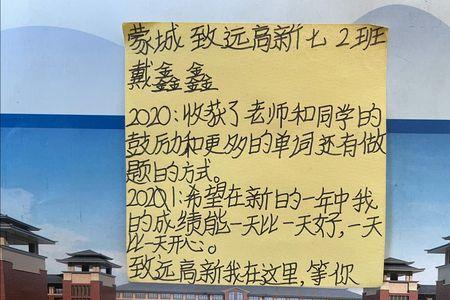 蒙城致远高新七2班
戴鑫鑫
2020:收获了老师和同学的
鼓励和更多的单词还有做
题的方式。
20201:希望在新的一年中我
的成绩能一天比一天好,一天
比一天开心。
致远高新我在这里,等你